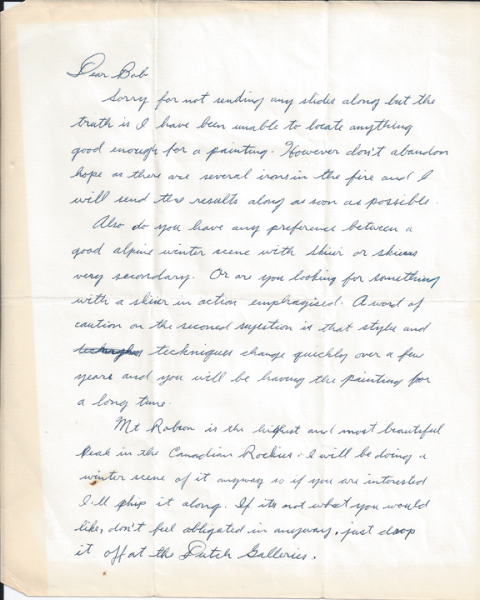 Dear Bob
Sorry for not sending any slides along but the
truth is I have been unable to locate anything
good enough for a painting. However don't abandon
hope as there are several irons in the fire and I
will send the results along as soon as possible.
Also do you have any preference between a
good alpine winter scene with skiier or skiiers
very secondary. Or are you looking for something
with a skiier in action emphasised. A word of
caution on the second sugestion is that styles and
techniques change quickly over a few
years and you will be having the painting for
a long time.
Mt Robson is the highest and most beautiful
peak in the Canadian Rockies. I will be doing a
winter scene of it anyway so if you are interested
I'll ship it along. If its not what you would
like, don't feel obligated in anyway, just drop
it off at the Dutch Galleries.